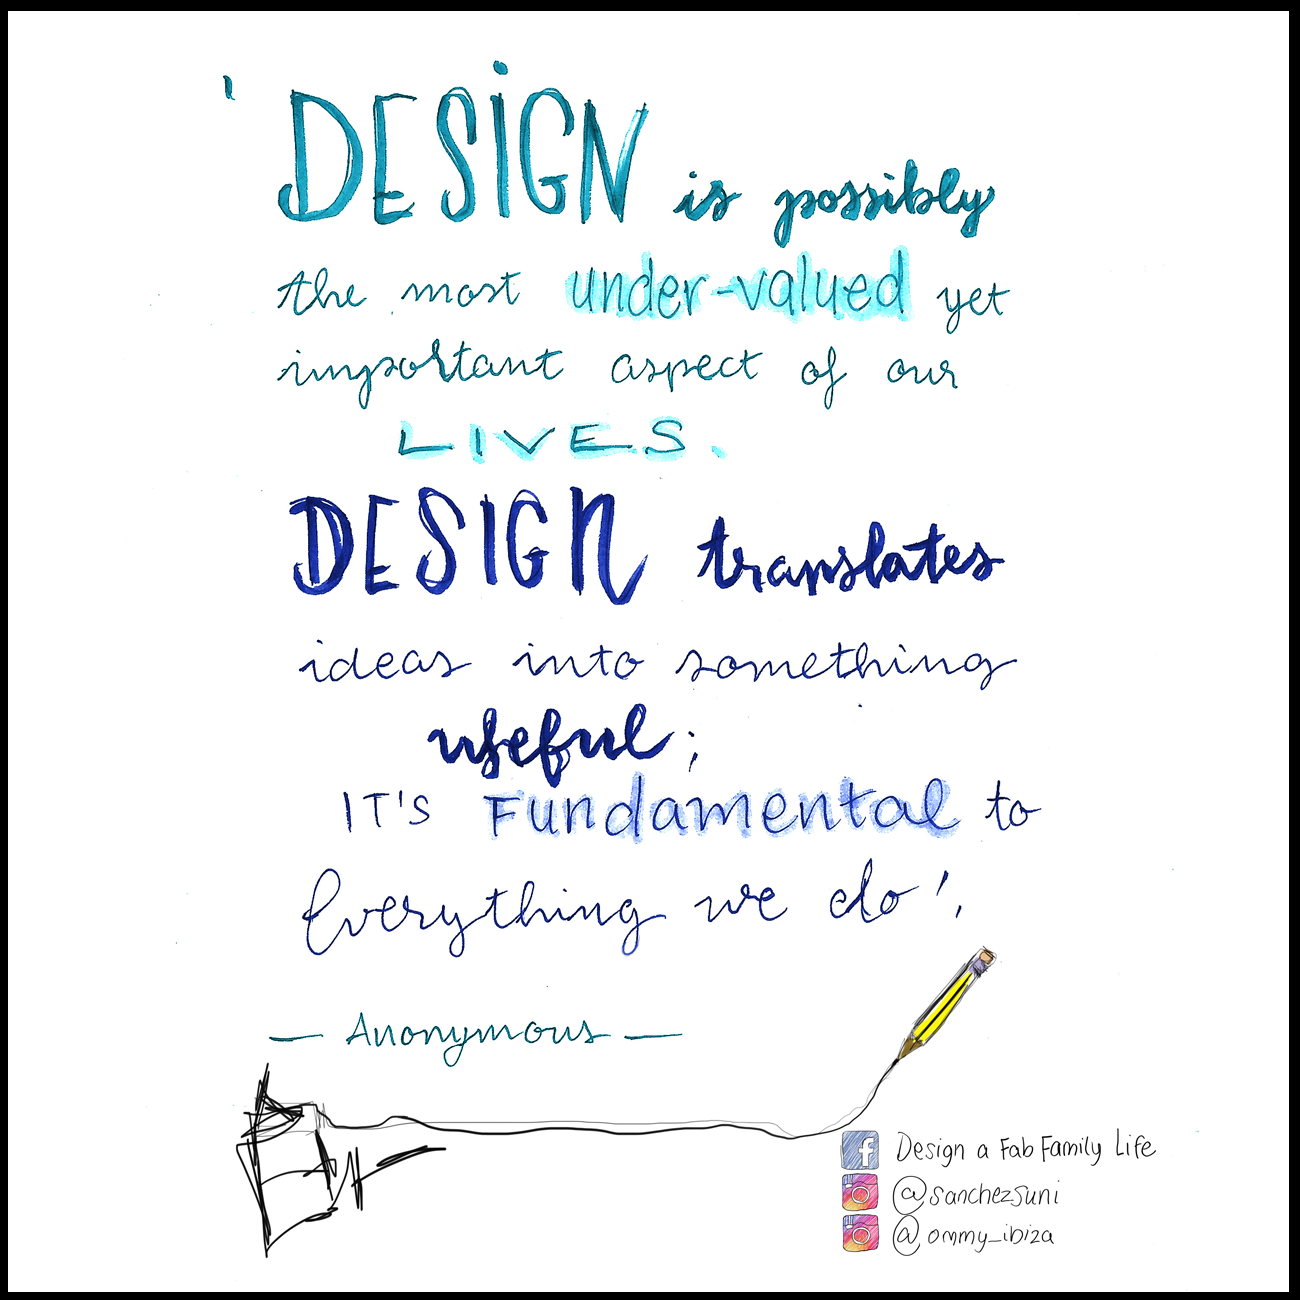 ' DESIGN is possibly
the most under-valued yet
important aspect of our
LIVES.
DESIGN translates
ideas into something
useful;
IT'S Fundamental to
Everything we do'.
— Anonymous —
Design a Fab Family Life
@sanchezsuni
@ommy_ibiza